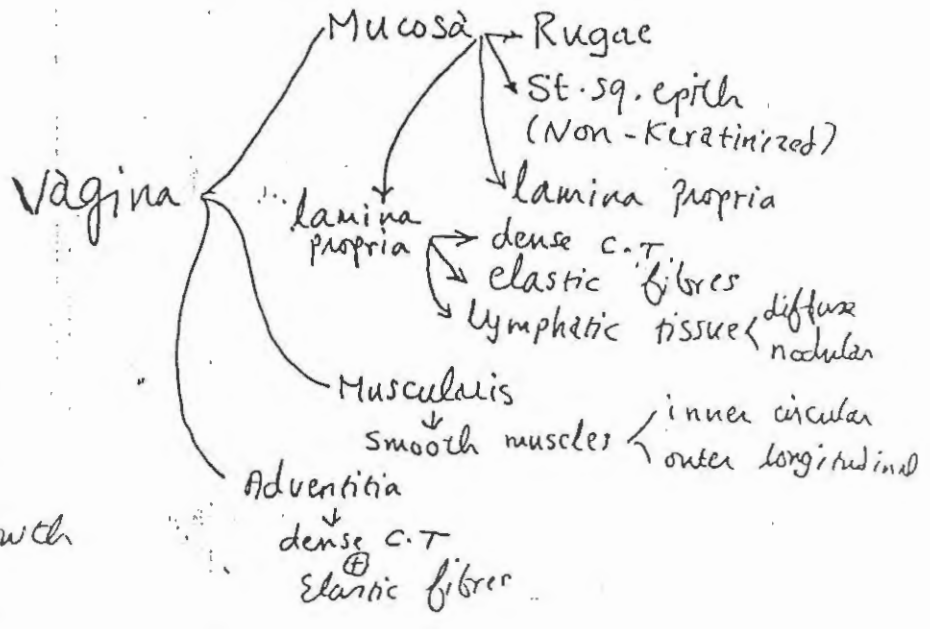 Mucosa → Rugae
St. sq. epith
(Non-Keratinized)
Vagina
lamina propria
lamina
propria → dense C.T
elastic fibres
lymphatic tissue < diffuse
nodular
Muscularis
smooth muscles < inner circular
outer longitudinal
Adventitia
dense C.T
+
Elastic fibres